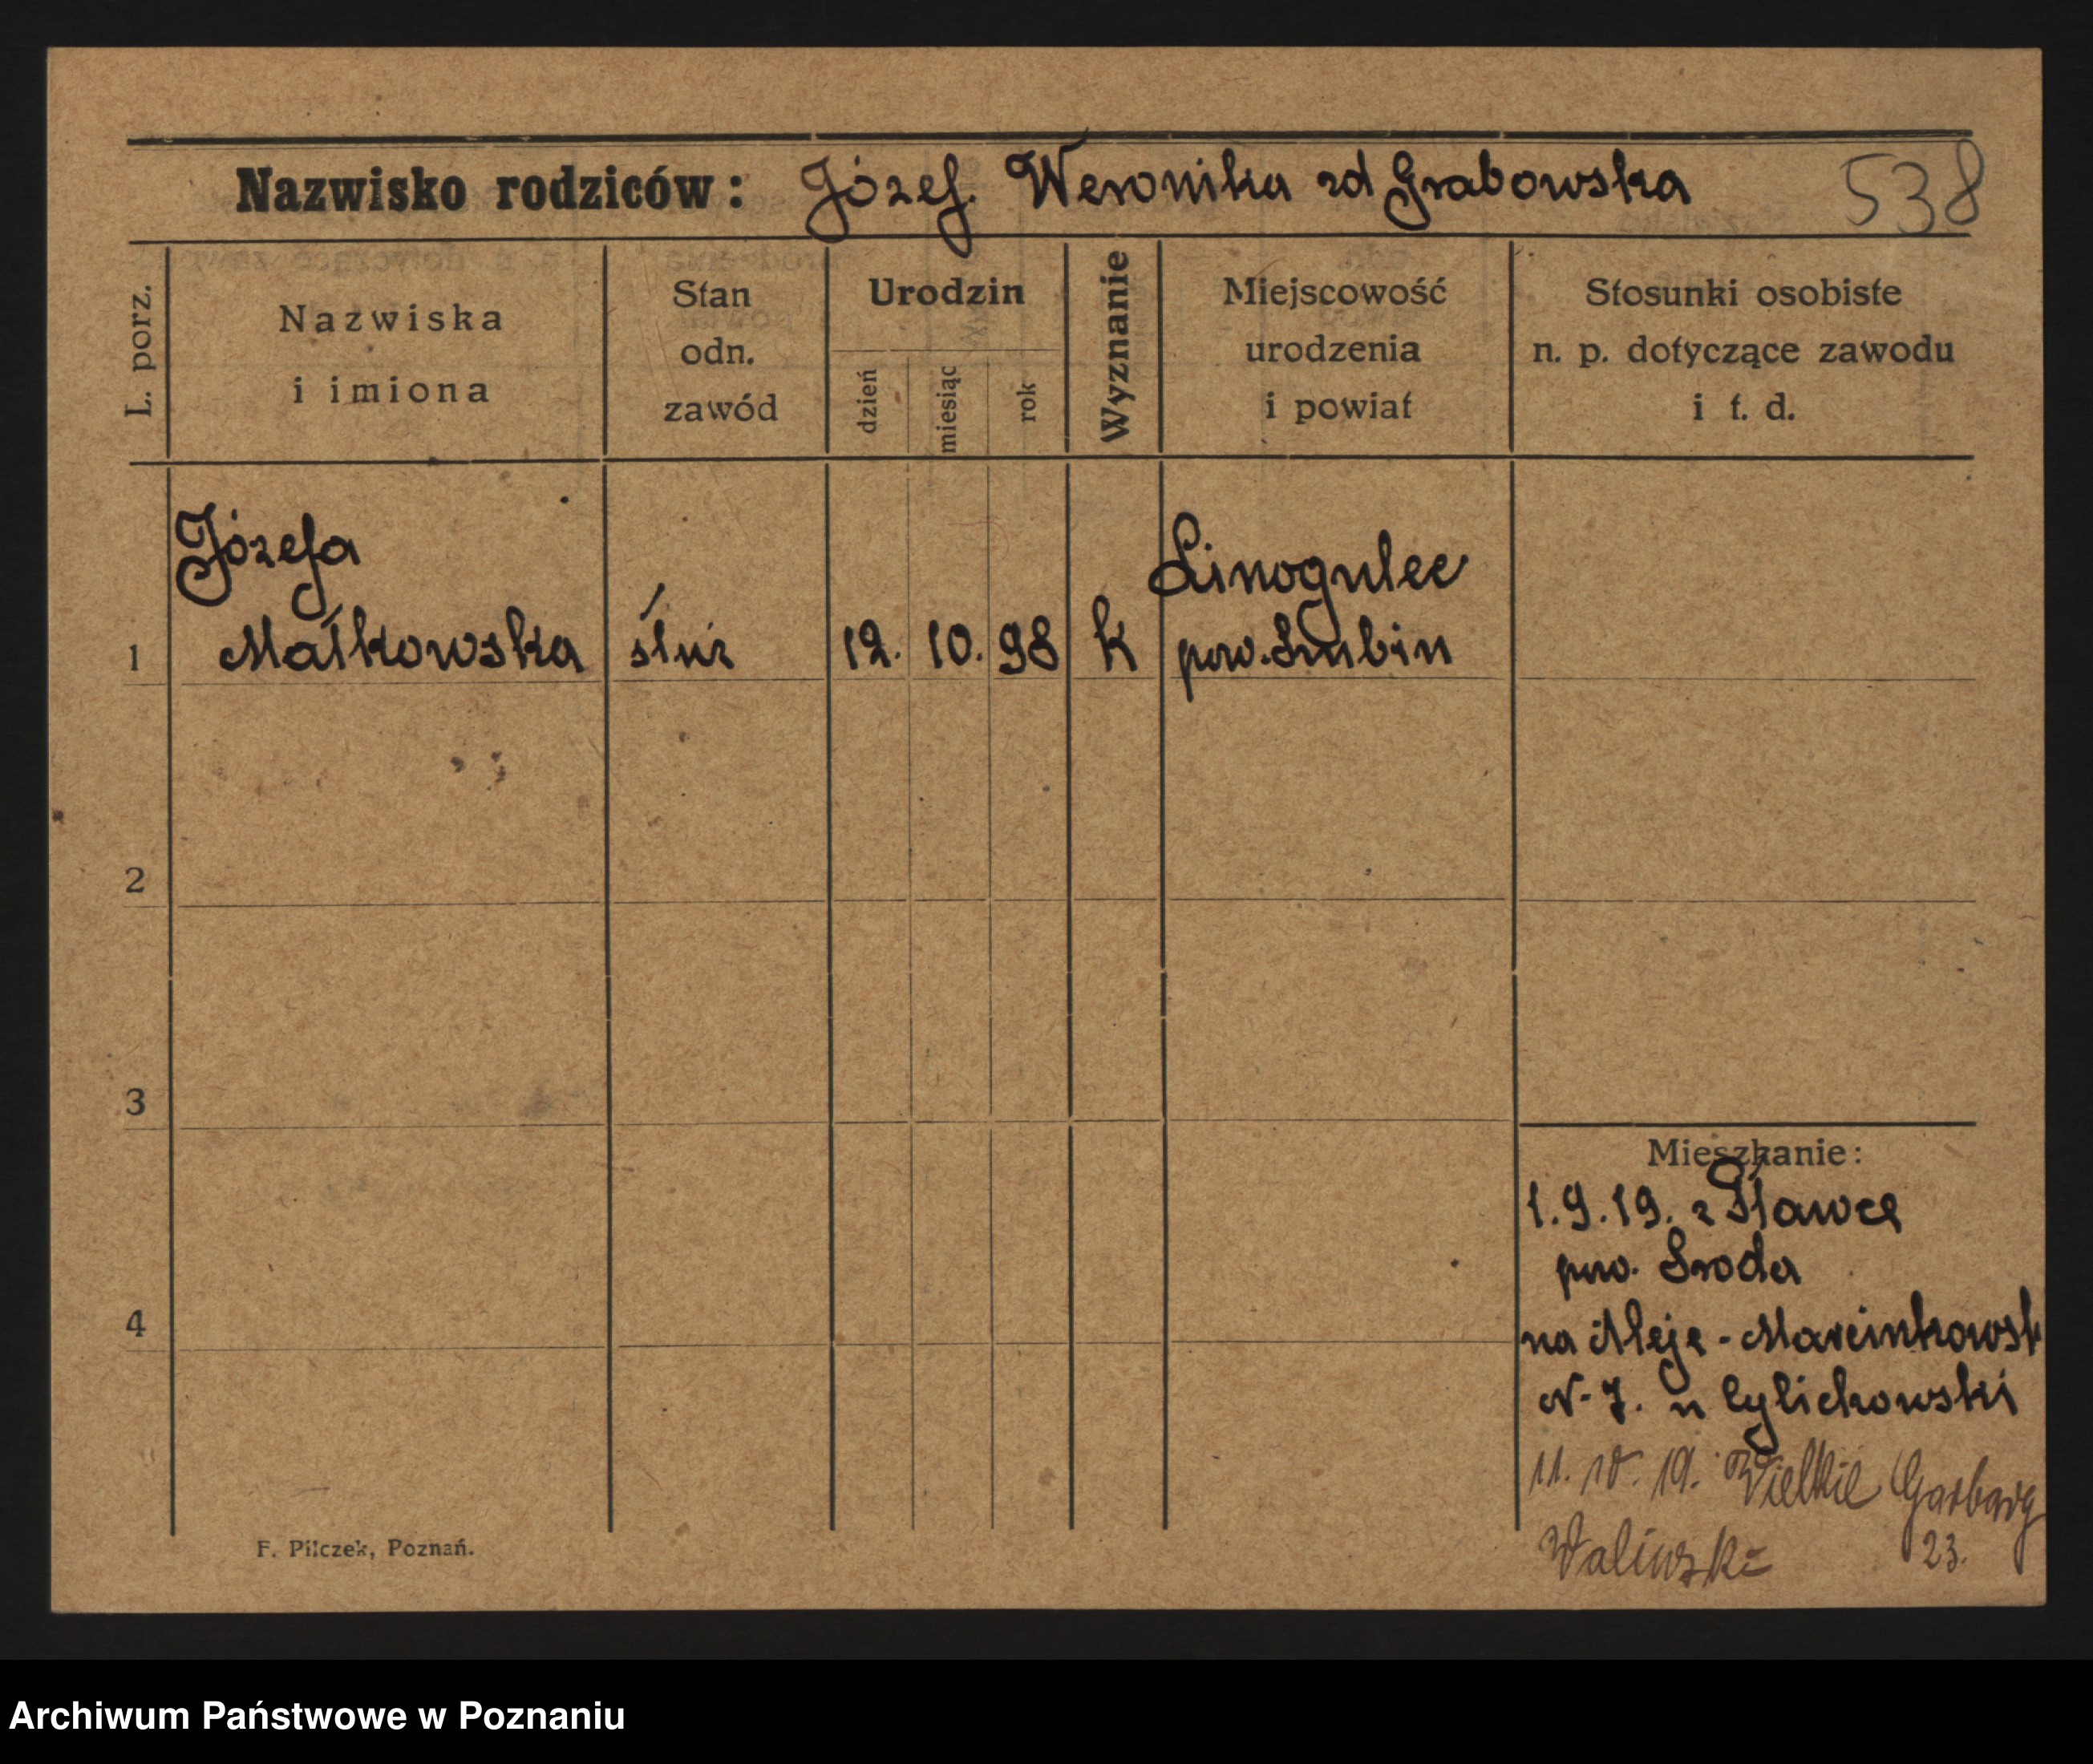 Nazwisko rodziców: Józef. Weronika zd Grabowska 538
L. porz.
Nazwiska i imiona
Stan odn. zawód
Urodzin
dzień
miesiąc
rok
Wyznanie
Miejscowość urodzenia i powiat
Stosunki osobiste n. p. dotyczące zawodu i t. d.
Józefa Linogulec
1 Małkowska służ 12. 10. 98 k pow. Szubin
2
3
Mieszkanie:
1.9.19. z Sławce
pow. Sroda
4
na Aleje - Marcinkowsk
N. 7. u Cylichowski
11. 10. 19. Wielkie Garbary
Waliwski 23.
F. Pilczek, Poznań.
Archiwum Państwowe w Poznaniu